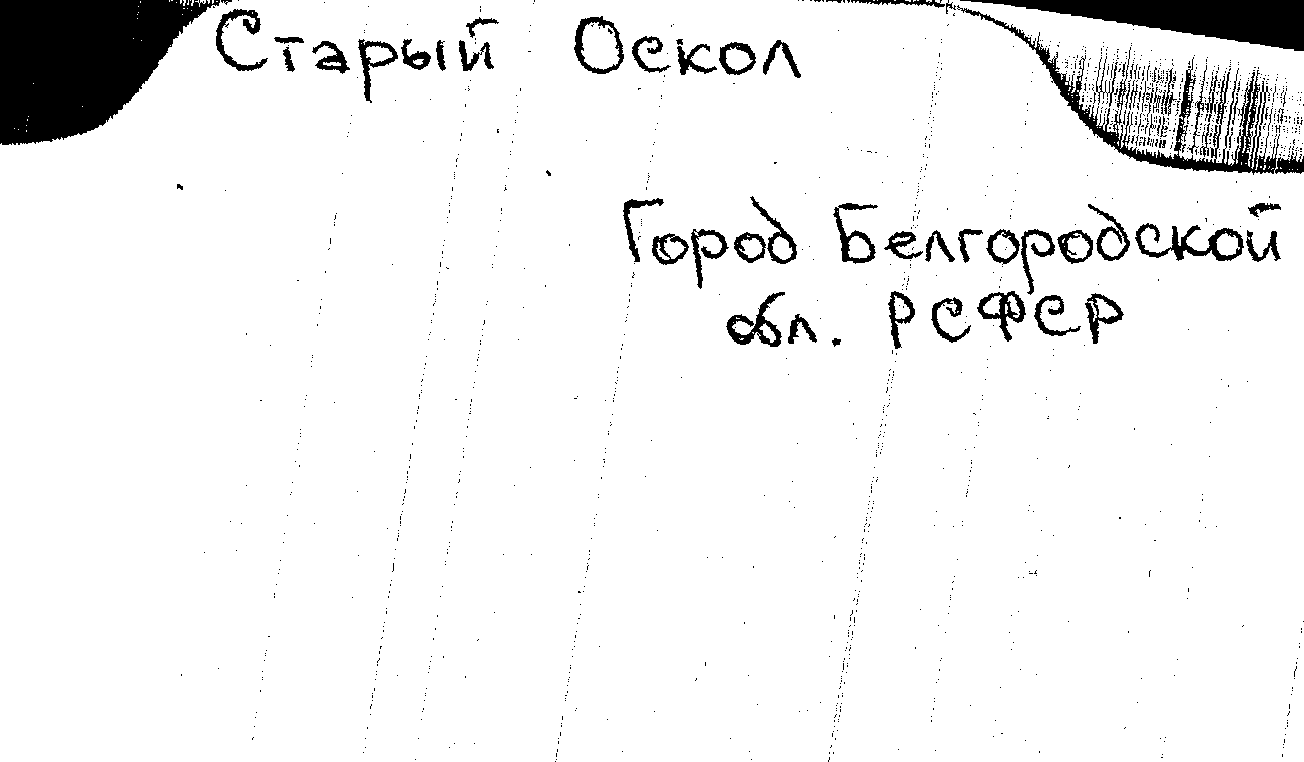 Старый Оскол
Город Белгородской
обл. РСФСР